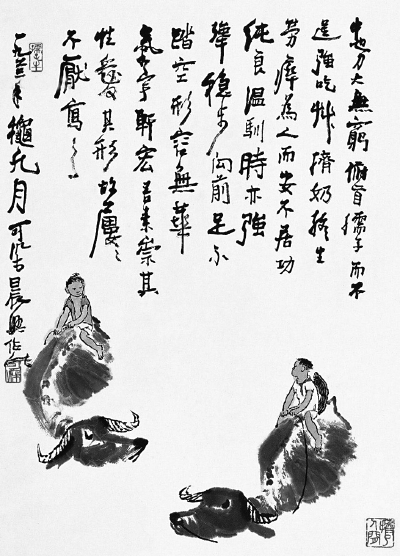 牛也力大無窮俯首孺子而不
逞強吃草擠奶終生
勞瘁為人而安不居功
純良溫馴時亦強
犟穩步向前足不
踏空形容無華
氣宇軒宏吾素崇其
性愛其形故屢〻
不厭寫之
一九六二年龝九月可染晨興作